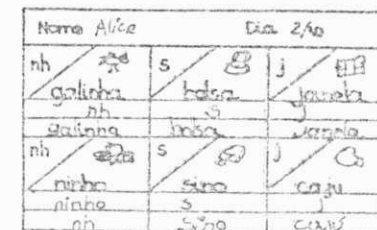 Nome Alice Dia 2/10
nh s j
galinha bolsa janela
nh s j
galinha bolsa janela
nh s j
ninho sino caju
ninho s j
nh sino caju